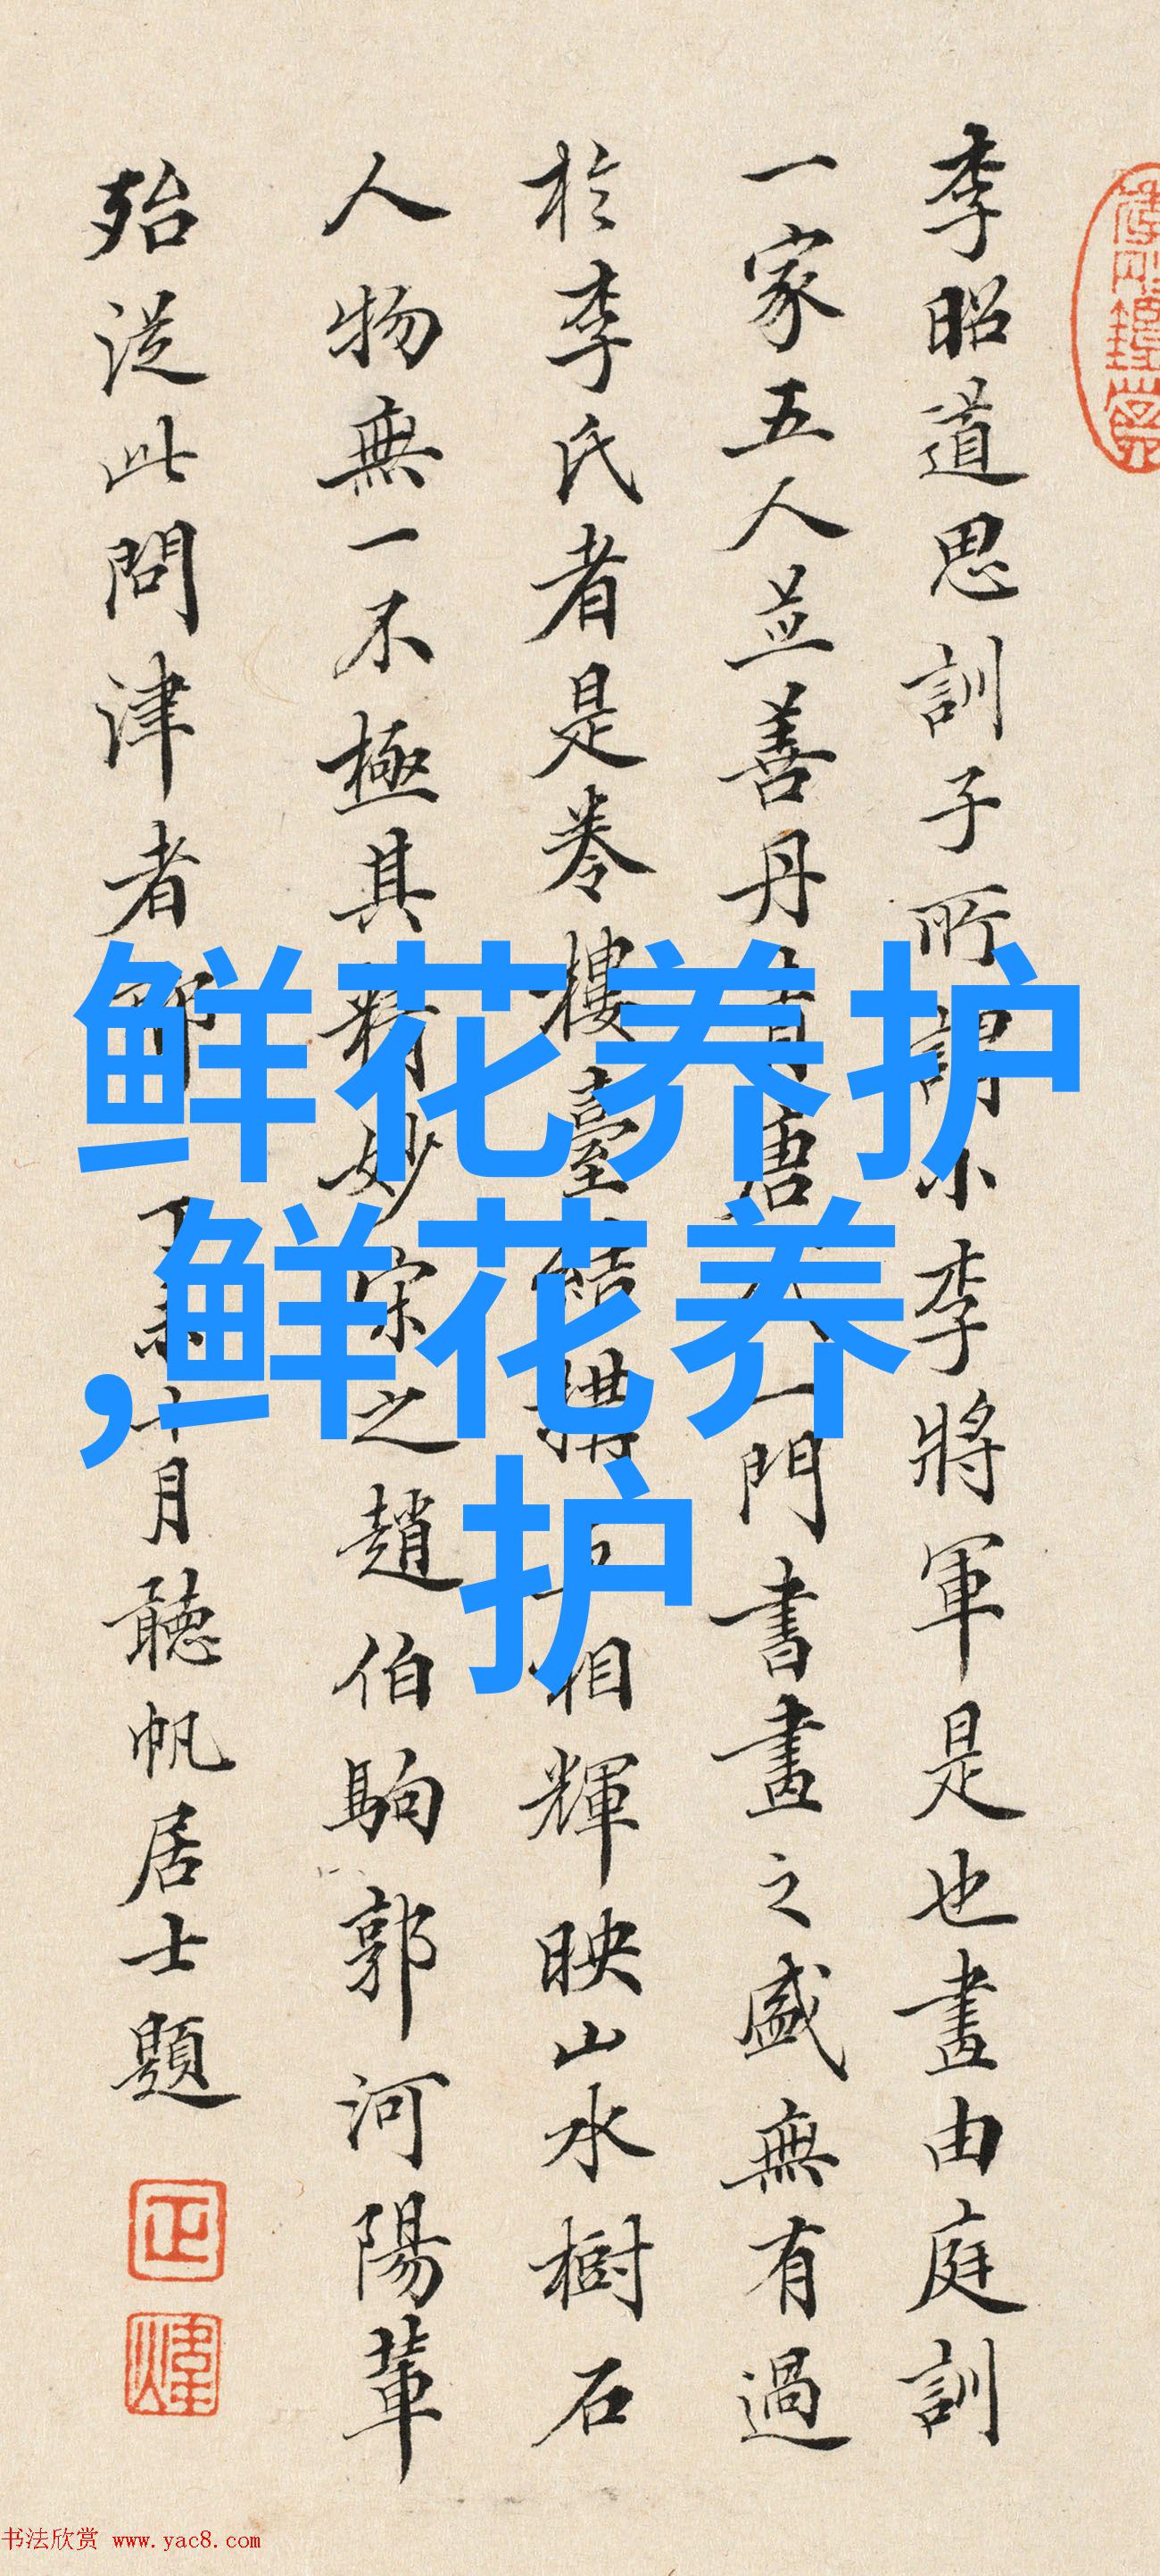 李昭道思訓子所謂小李將軍是也畫由庭訓
一家五人並善丹青唐人一門書畫之盛無有過
於李氏者是卷樓臺結構 相輝映山水樹石
人物無一不極其精妙宋之趙伯駒郭河陽輩
殆從此問津者耶 丁未十月聽帆居士題
鲜花养护
,鲜花养
护
正
煒
书法欣赏 www.yac8.com